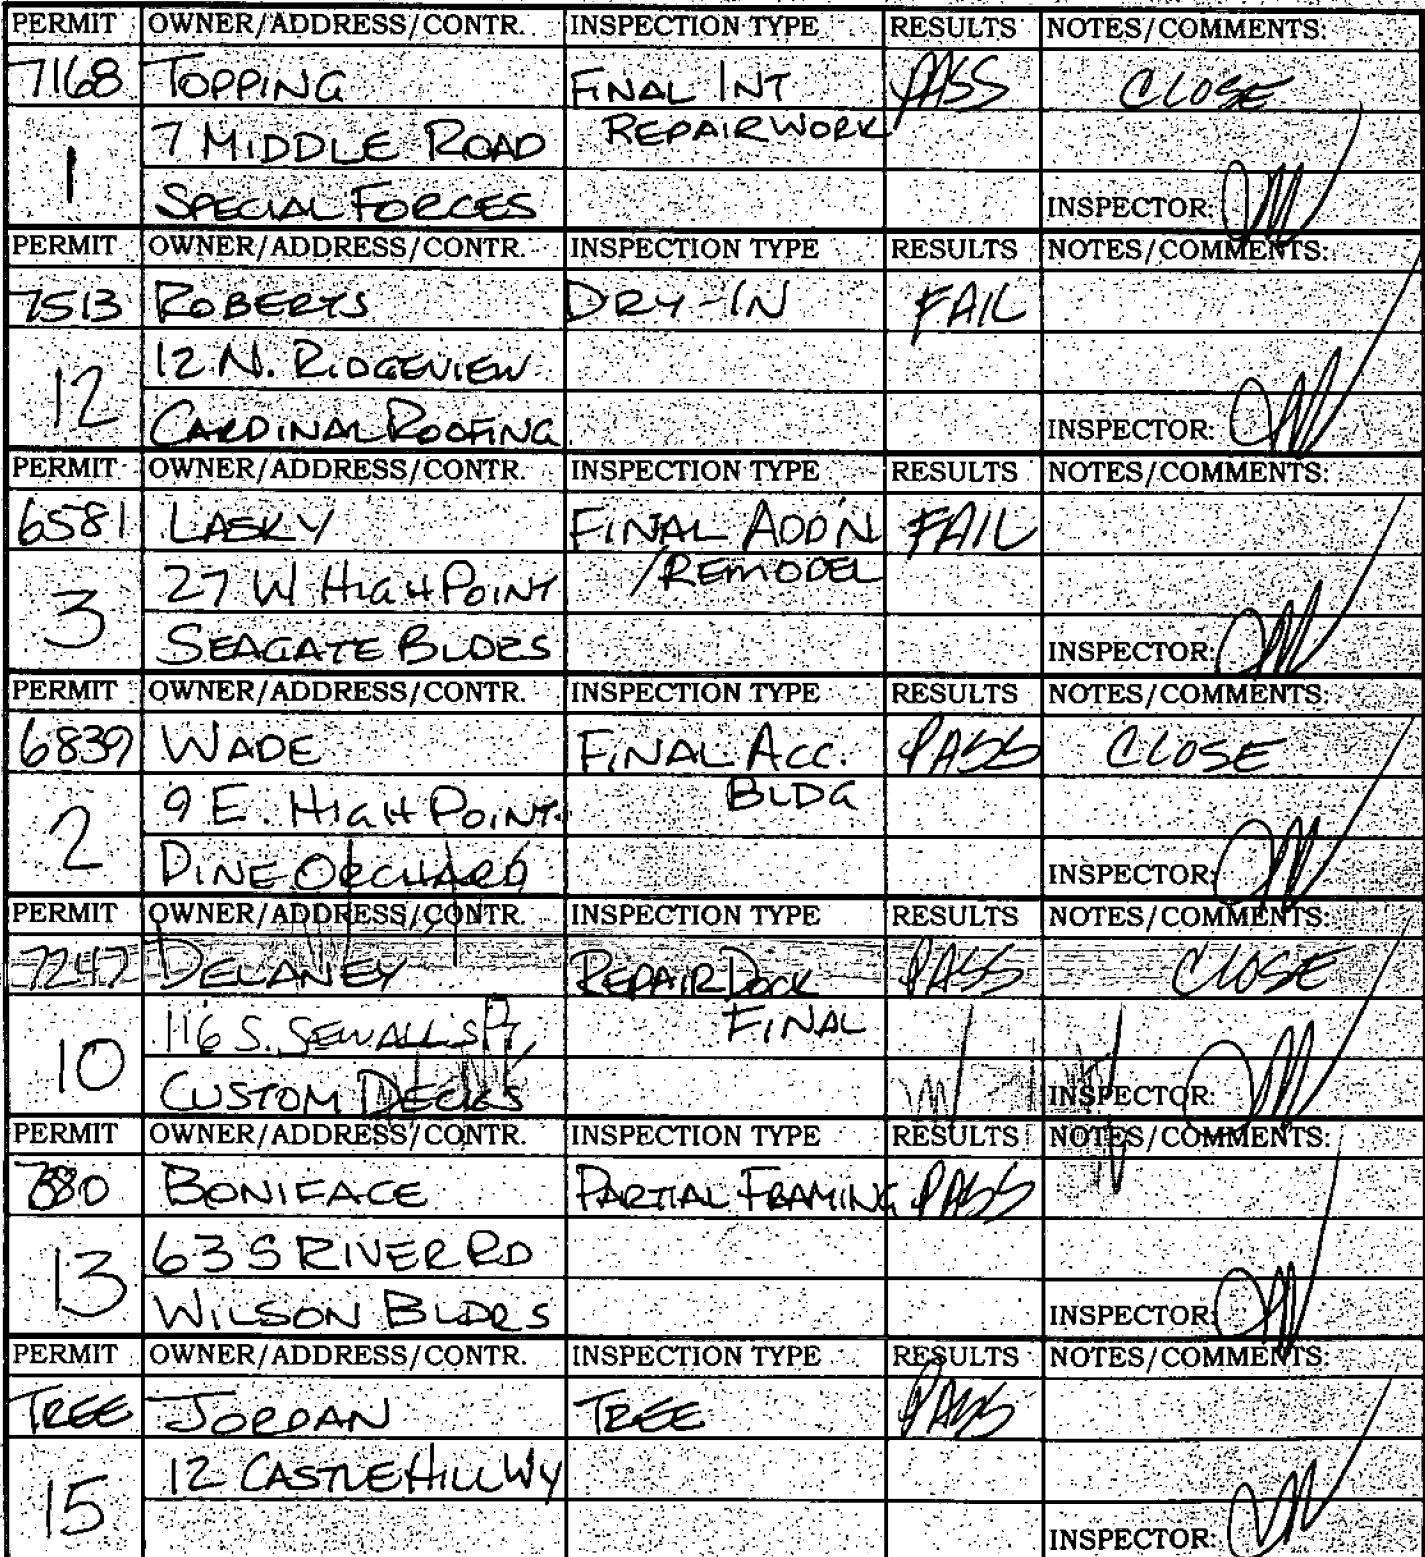 PERMIT OWNER/ADDRESS/CONTR. INSPECTION TYPE RESULTS NOTES/COMMENTS:
7168 TOPPING FINAL INT PASS CLOSE
7 MIDDLE ROAD REPAIR WORK
1
SPECIAL FORCES INSPECTOR:
PERMIT OWNER/ADDRESS/CONTR. INSPECTION TYPE RESULTS NOTES/COMMENTS:
7513 ROBERTS DRY-IN FAIL
12 N. RIDGEVIEW
12
CARDINAL ROOFING INSPECTOR:
PERMIT OWNER/ADDRESS/CONTR. INSPECTION TYPE RESULTS NOTES/COMMENTS:
6581 LASKY FINAL ADD'N FAIL
27 W HIGH POINT /REMODEL
3
SEAGATE BLDRS INSPECTOR:
PERMIT OWNER/ADDRESS/CONTR. INSPECTION TYPE RESULTS NOTES/COMMENTS:
6839 WADE FINAL ACC. PASS CLOSE
9 E. HIGH POINT BLDG
2
PINE ORCHARD INSPECTOR:
PERMIT OWNER/ADDRESS/CONTR. INSPECTION TYPE RESULTS NOTES/COMMENTS:
7247 DELANEY REPAIR DOCK PASS CLOSE
116 S. SEWALL'S PT FINAL
10
CUSTOM DECKS INSPECTOR:
PERMIT OWNER/ADDRESS/CONTR. INSPECTION TYPE RESULTS NOTES/COMMENTS:
BONIFACE PARTIAL FRAMING PASS
63 S RIVER RD
13
WILSON BLDRS INSPECTOR:
PERMIT OWNER/ADDRESS/CONTR. INSPECTION TYPE RESULTS NOTES/COMMENTS:
TREE JORDAN TREE PASS
12 CASTLE HILL WY
15
INSPECTOR: